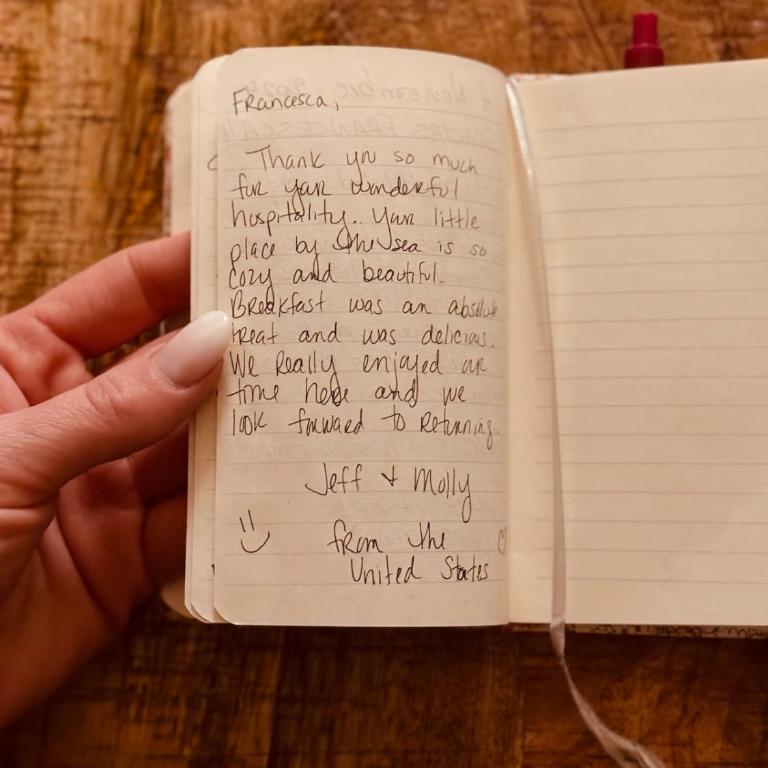 Francesca,
Thank you so much
for your wonderful
hospitality.. Your little
place by the sea is so
cozy and beautiful..
Breakfast was an absolute
treat and was delicious.
We Really enjoyed our
time here and we
look forward to Returning.
Jeff + Molly
from the
United States